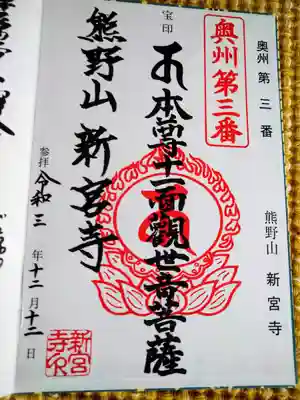 奥州第三番
熊野山 新宮寺
奥州第三番
宝印
本尊十一面觀世音菩薩
熊野山新宮寺
参拝 令和三年十二月十二日
新宮寺印